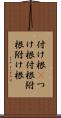 付け根つ
け根付根附
根附け根